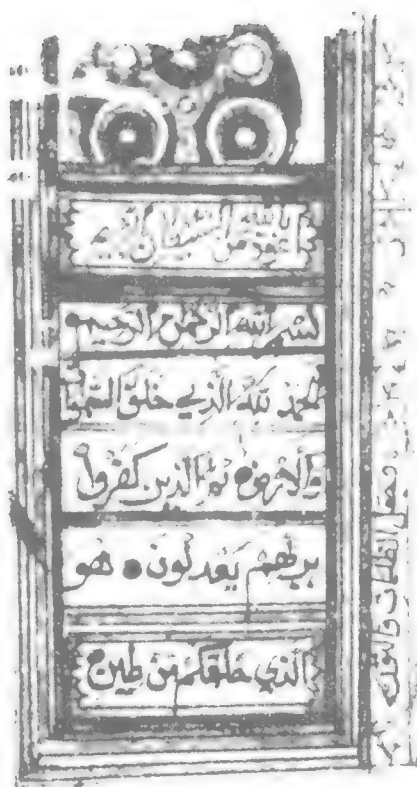 اعوذ بالله من الشيطان الرجيم
بسم الله الرحمن الرحيم
الحمد لله الذي خلق السموا
والارض ثم الذين كفروا
بربهم يعدلون هو
الذي خلقكم من طين
وجعل الظلمات والنور